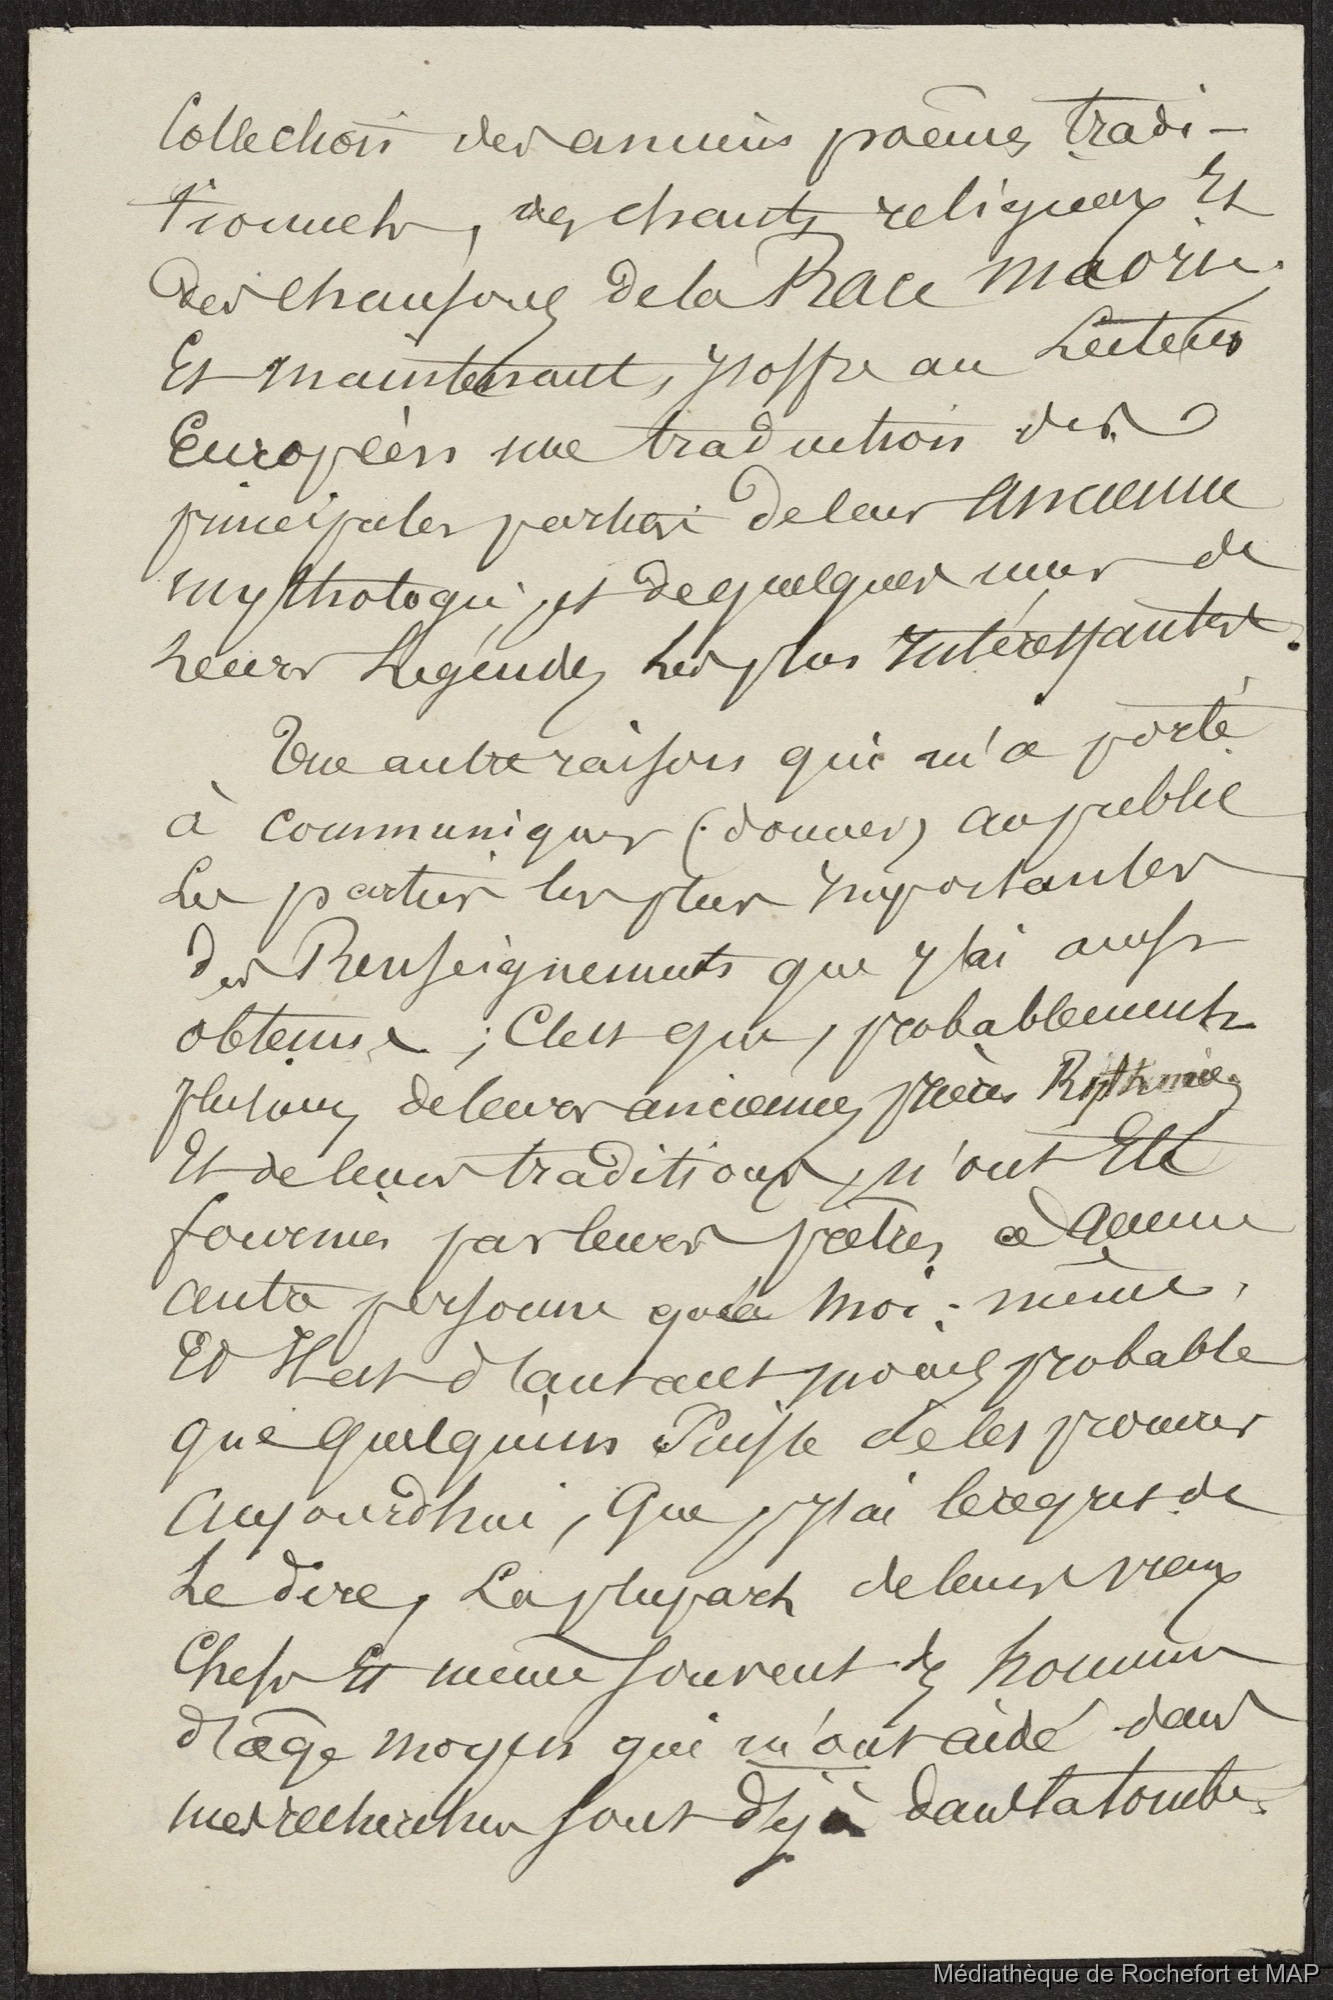 Collection des anciens poêmes tradi-
tionnels, des chants religieux Et
des chansons de la Race maorie.
Et maintenant, j'offre au Lecteur
Européen une traduction des
principales parties de leur ancienne
mythologie, et de quelques unes de
Leurs Légendes Les plus Intéressantes.
Une autre raison qui m'a porté
à communiquer (donner) au public
Les parties les plus importantes
des Renseignements que j'ai ainsi
obtenus ; C'est que, probablement
plusieurs de leurs anciennes prières Rythmées
Et de leurs traditions, n'ont Eté
fournies par leurs prêtres à aucune
autre personne qu'à Moi-même.
Et Il est d'autant moins probable
que quelqu'un Puisse se les procurer
Aujourd'hui, Que, j'ai le regret de
Le dire, La plupart de leurs vieux
Chefs Et même souvent des hommes
d'âge moyen qui m'ont aidé dans
mes recherches sont déjà dans la tombe.
Médiathèque de Rochefort et MAP